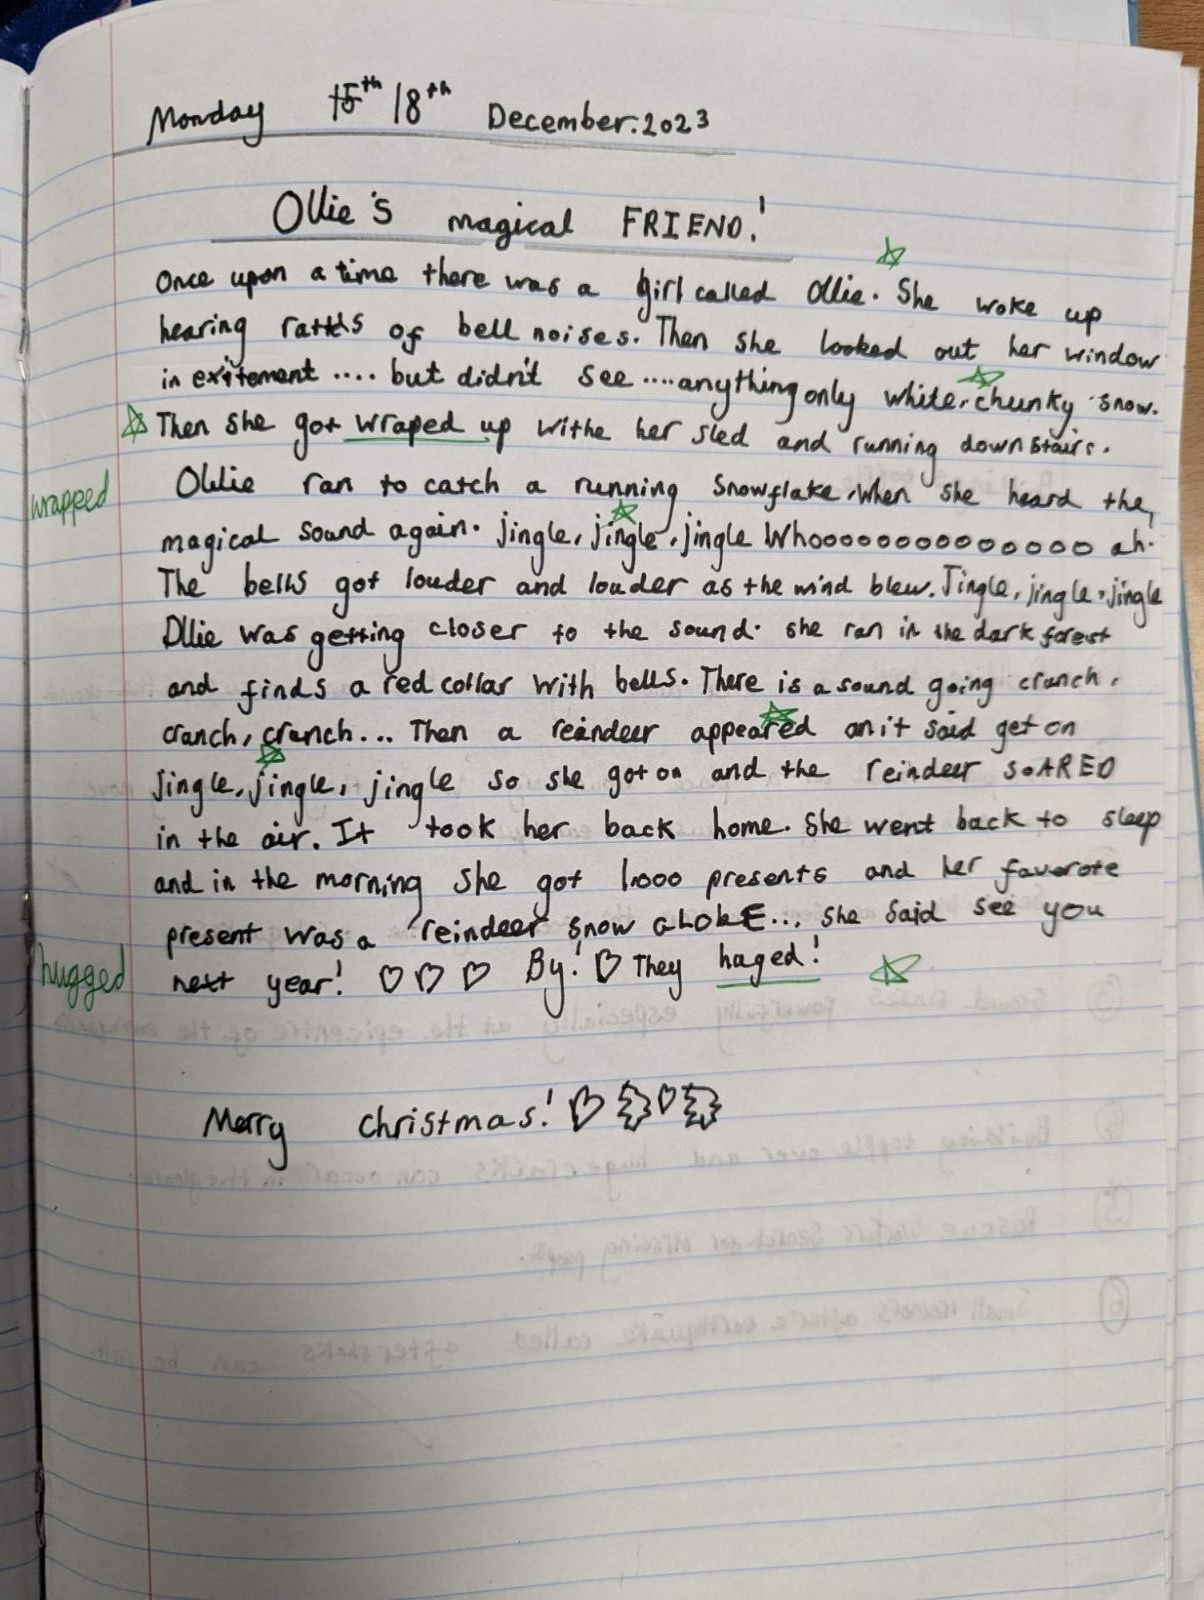 Monday 15th 18th December.2023
Ollie's magical FRIEND!
Once upon a time there was a girl called Ollie. She woke up
hearing rattls of bell noises. Then she looked out her window
in exitement .... but didn't see ....anything only white, chunky snow.
Then she got wraped up withe her sled and running down stairs.
wrapped
Ollie ran to catch a running snowflake, when she heard the,
magical sound again. jingle, jingle, jingle Whooooooooooooooo ah.
The bells got louder and louder as the wind blew. Jingle, jingle, jingle
Ollie was getting closer to the sound. she ran in the dark forest
and finds a red collar with bells. There is a sound going cranch,
cranch, cranch... Then a reindeer appeared an it said get on
Jingle, jingle, jingle so she got on and the reindeer SOARED
in the air. It took her back home. She went back to sleep
and in the morning she got 1,000 presents and her favorote
present was a reindeer snow gLObE... she said see you
hugged
next year! By! They haged!
Merry christmas!